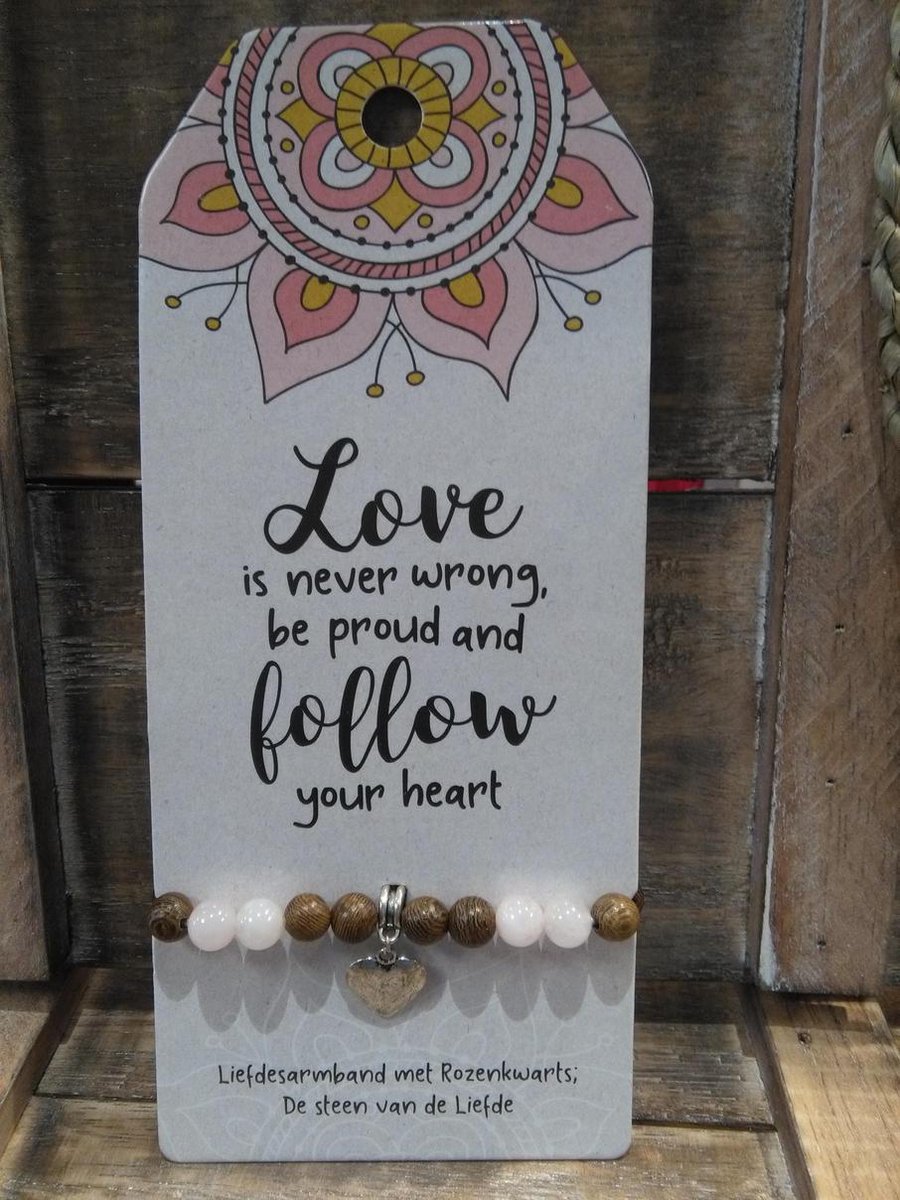 Love
is never wrong,
be proud and
follow
your heart
Liefdesarmband met Rozenkwarts;
De steen van de Liefde